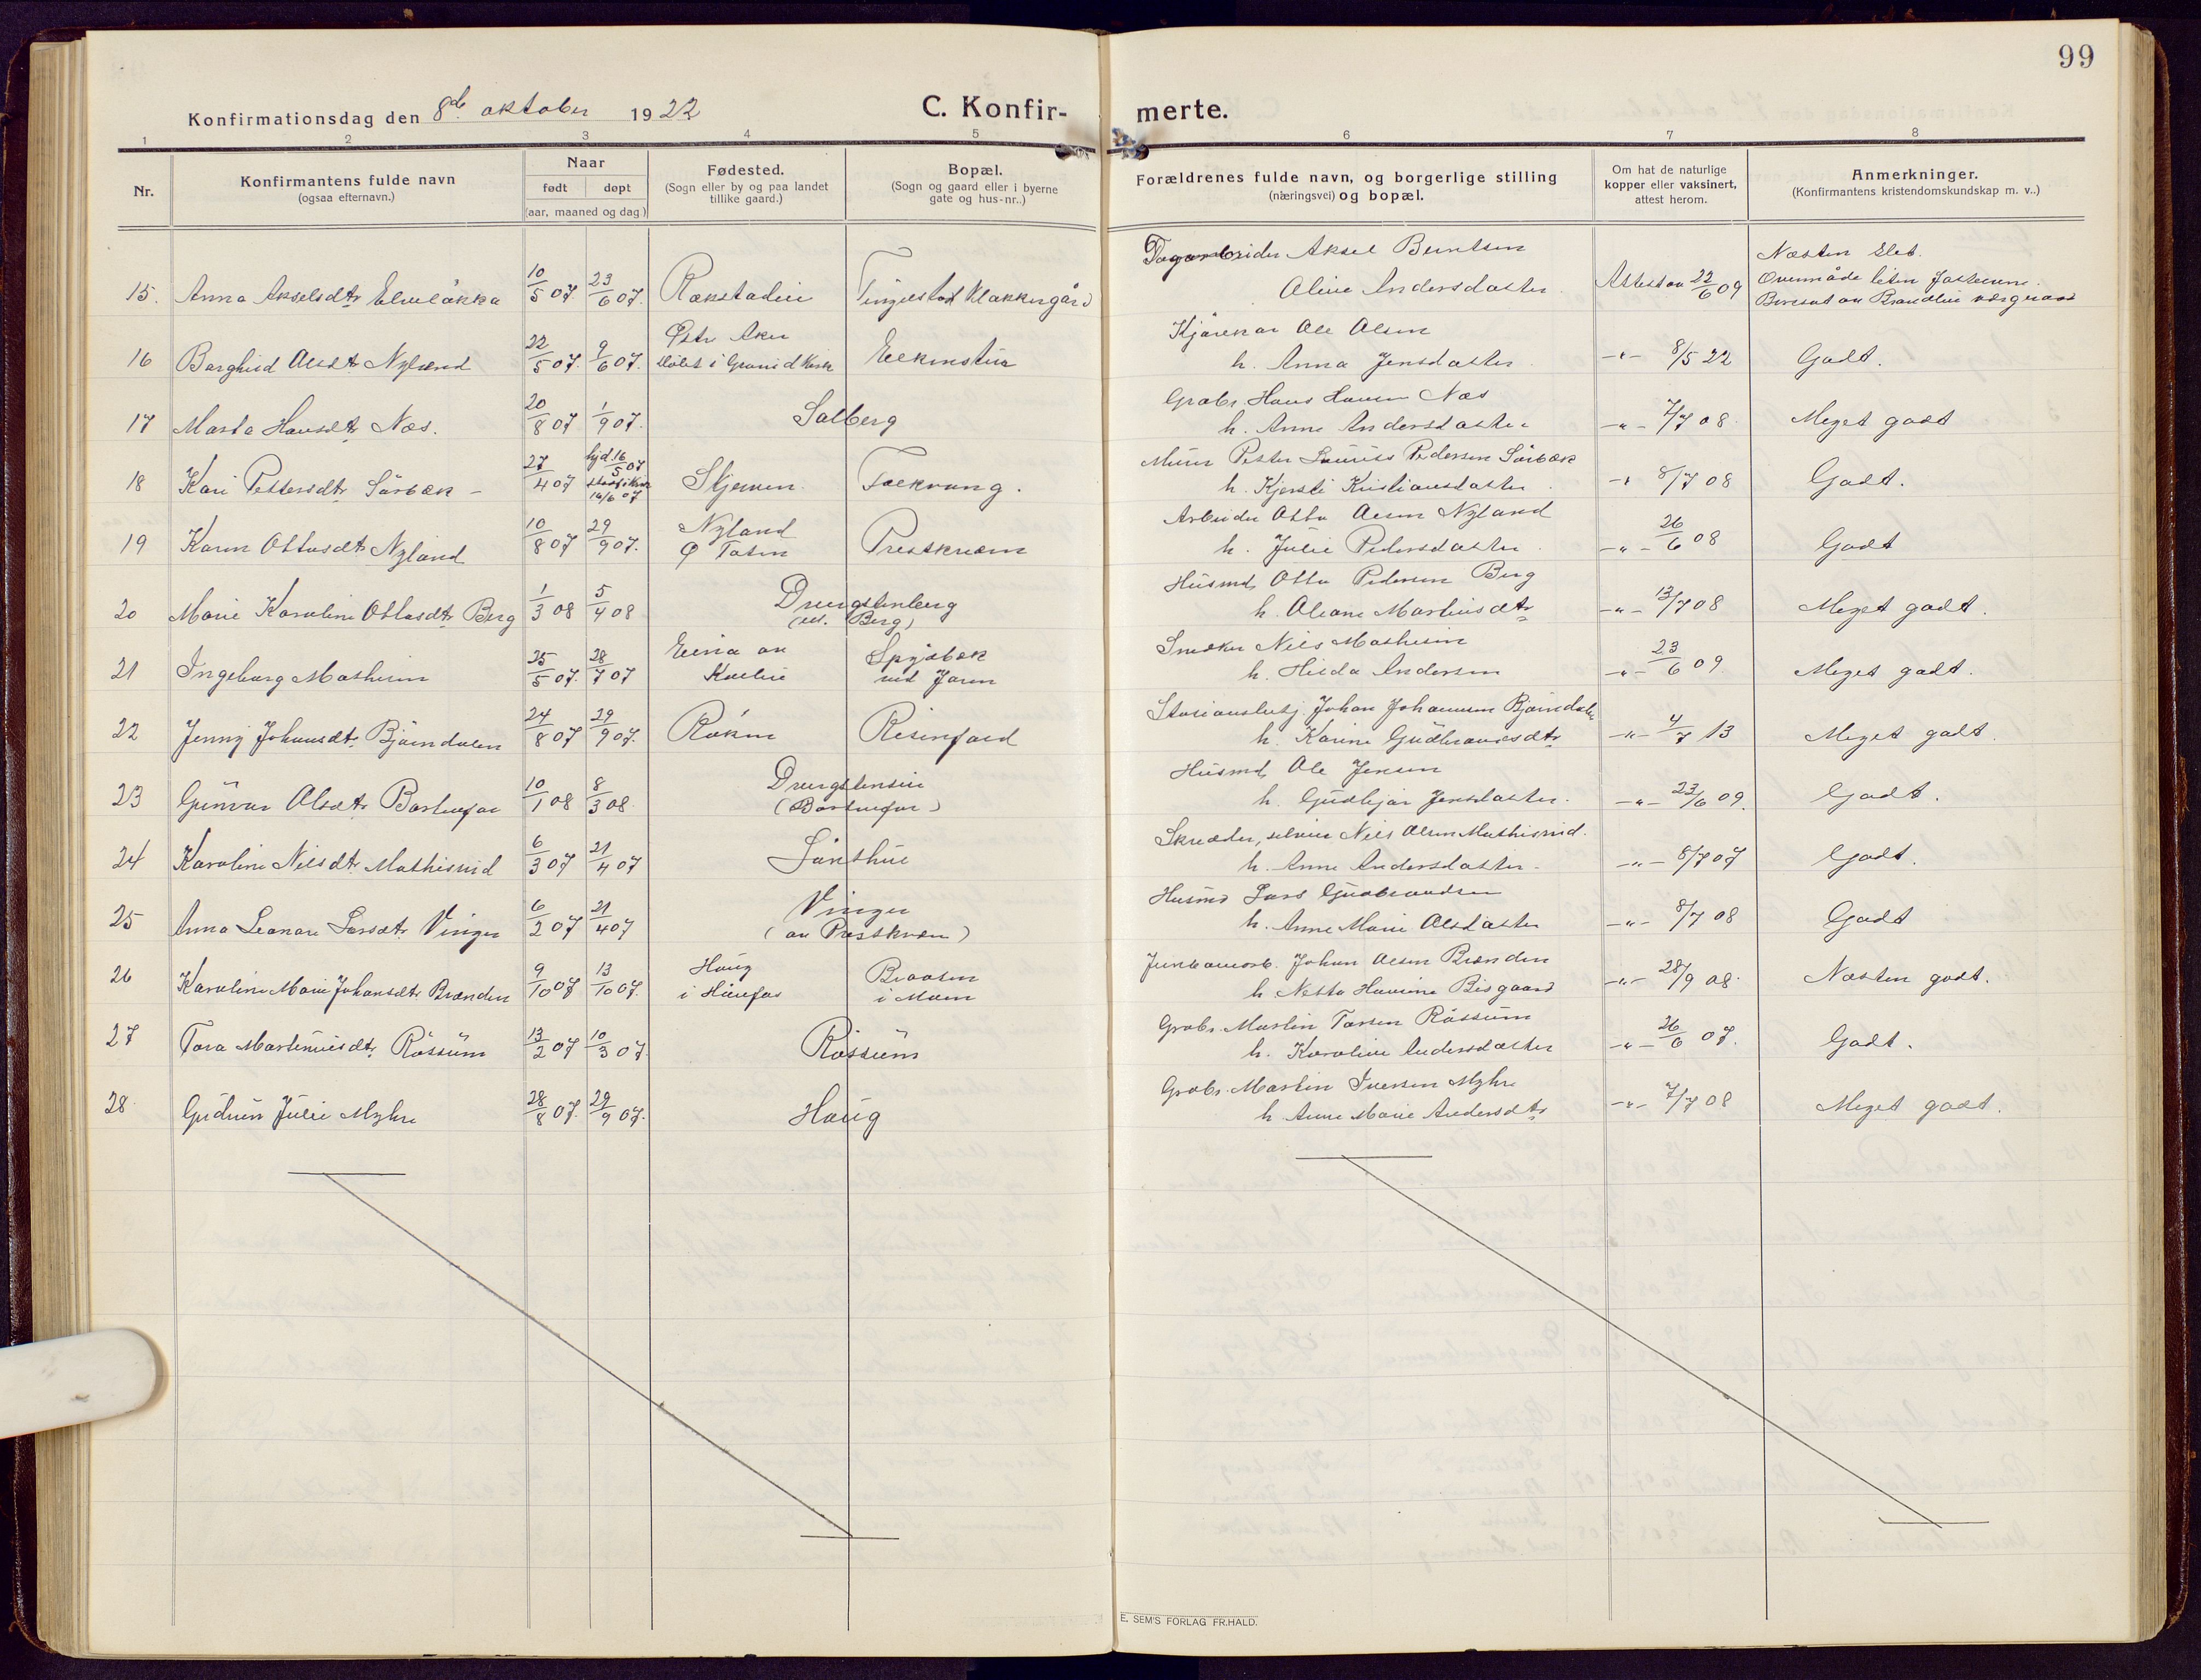 99
Konfirmationsdag den 8de oktober 1922
C. Konfir-
merte.
1 2 3 4 5 6 7 8
Nr.
Konfirmantens fulde navn
(ogsaa efternavn.)
Naar
født døpt
(aar, maaned og dag)
Fødested.
(Sogn eller by og paa landet
tillike gaard.)
Bopæl.
(Sogn og gaard eller i byerne
gate og hus-nr..)
Forældrenes fulde navn, og borgerlige stilling
(næringsvei) og bopæl.
Om hat de naturlige
kopper eller vaksinert,
attest herom.
Anmerkninger.
(Konfirmantens kristendomskundskap m. v..)
Aksel Berntsen
Næsten slet.
15. Anna Akselsdtr Elveløkka 10/5 07 23/6 07. Rækstadlie Tingelstad Klækkergård
Oline Andersdatter Attest av 22/6 09
Østr Aker Kjørekar Ole Olsen
16 Borghild Olsdtr Nyland 22/5 07. 9/6 07. døbt i Kirke
h. Anna Jensdatter -"- 8/5 22 Godt.
Grdbr. Hans Hansen Næs
17 Marta Hansdtr Næs. 20/8 07 1/9 07. Solberg
h. Anne Andersdatter -"- 7/7 08. Meget godt
Murer Petter Laurits Pedersen Sørbæk
18 Kari Pettersdtr Sørbæk - 27/4 07 hjd. 16/5 07 stadf i Kirk 16/6 07 Skjerven. Folkvang.
h. Kjersti Kristiansdatter -"- 8/7 08 Godt.
Arbeider Otto Olsen Nyland
19 Karen Ottosdtr Nyland 10/8 07 29/9 07. Nyland Ø Toten Prestkværn
h. Julie Pedersdatter -"- 26/6 08 Godt
Husmd Otto Pedersen Berg
20 Marie Karoline Ottosdtr Berg 1/3 08 5/4 08 Dvergstenberg
(Berg)
h. Oleane Martinsdtr -"- 13/7 08 Meget godt.
Snekker Nils Mathesen
21 Ingeborg Mathesen 25/5 07. 28/7 07 Eina av Kolbu ved Jaren
h. Hilda Andersen -"- 23/6 09 Meget godt.
Johan Johannesen Bjørndalen
22 Jenny Johansdtr Bjørndalen 24/8 07 29/9 07. Røken
h. Karine Gudbrandsdtr -"- 4/7 13 Meget godt.
Husmd Ole Jensen
23 Gunvor Olsdtr 10/1 08 8/3 08. Dvergstenseie
h. Gudbjør Jensdatter. -"- 23/6 09. Godt.
Nils Olsen Mathiseid.
24 Karoline Nilsdtr Mathiseid 6/3 07 21/4 07
h. Anne Andersdatter. -"- 8/7 07 Godt.
Husmd Lars Gudbrandsen
25 Anna Leonore Larsdtr Vinger 6/2 07 21/4 07 Vinger
(av Prestkværn)
h. Anne Marie Olsdatter -"- 8/7 08 Godt
Jernbanearb. Johan Olsen Brænden
26 Karoline Marie Johansdtr Brænden 9/10 07 13/10 07. Haug i Hønefos Braaten i Moen
h Netta Bisgaard -"- 28/9 08. Næsten godt.
Grdbr. Martin Torsen Røssum
27 Tora Martinusdtr. Røssum 13/2 07 10/3 07. Røssum
h. Karoline Andersdatter -"- 26/6 07. Godt.
Grdbr. Martin Iversen Myhre
28 Gudrun Julie Myhre 28/8 07. 29/9 07. Haug
h Anne Marie Andersdtr -"- 7/7 08 Meget godt.
E. SEM'S FORLAG FR.HALD.